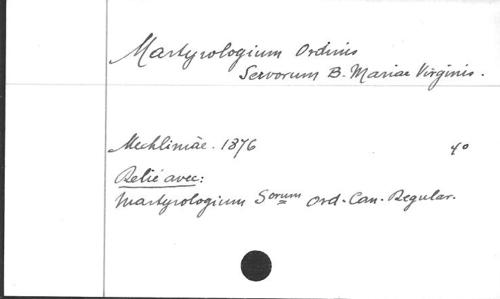 Martyrologium Ordinis
Servorum B. Mariae Virginis.
Mechliniae. 1876 4º
Relié avec:
Martyrologium Sorum Ord. Can. Regular.